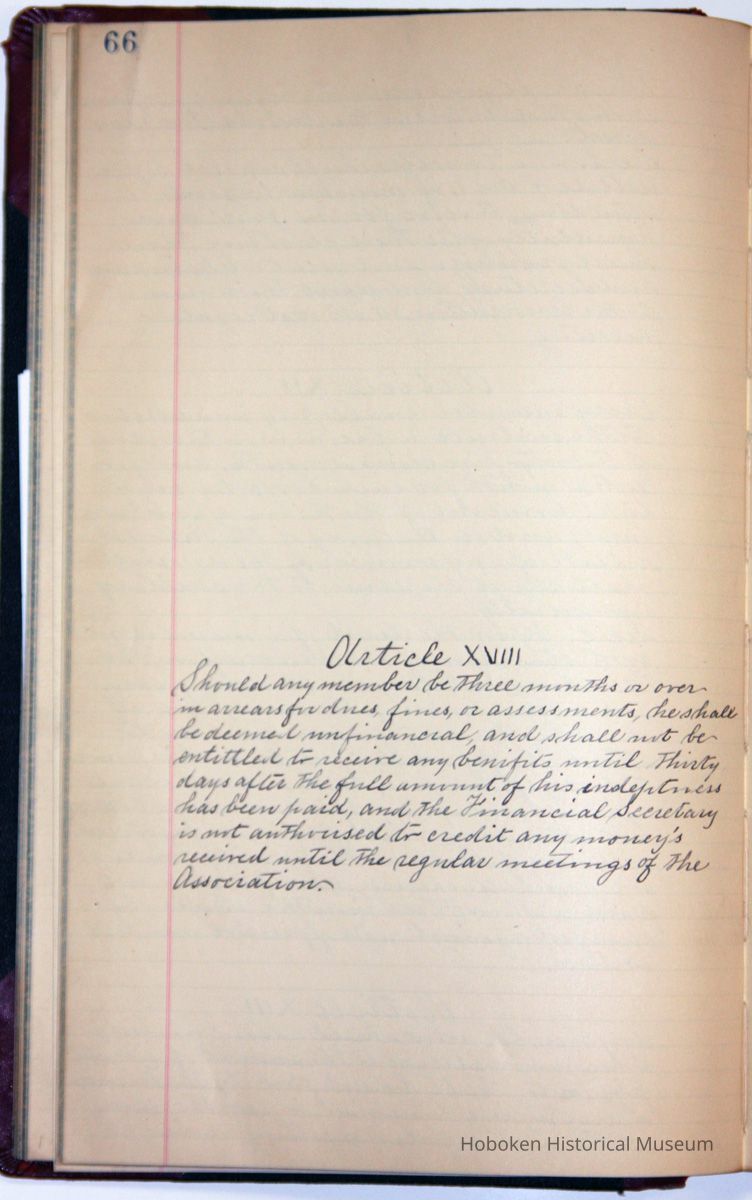 66
Article XVIII
Should any member be three months or over
in arrears for dues, fines, or assessments, he shall
be deemed unfinancial, and shall not be
entittled to receive any benifits until thirty
days after the full amount of his indeptness
has been paid, and the Financial Secretary
is not authorised to credit any money's
received until the regular meetings of the
Association.
Hoboken Historical Museum